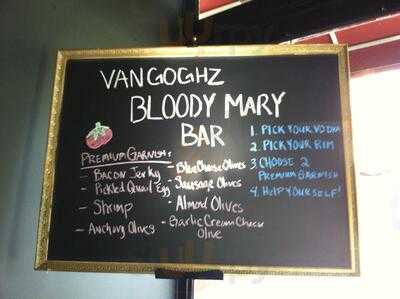 VAN GOGHZ
BLOODY MARY
BAR
PREMIUM GARNISH:
- BACON JERKY
- Pickled Quail Egg
- Shrimp
- Anchovy Olives
- Blue Cheese Olives
- Sausage Olives
- Almond Olives
- Garlic Cream Cheese
Olive
1. PICK YOUR VODKA
2. PICK YOUR RIM
3 CHOOSE 2
PREMIUM GARNISH
4. HELP YOURSELF!